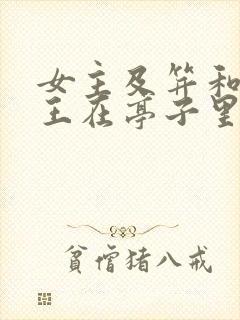 女主及笄和
王在亭子里
貧僧猪八戒